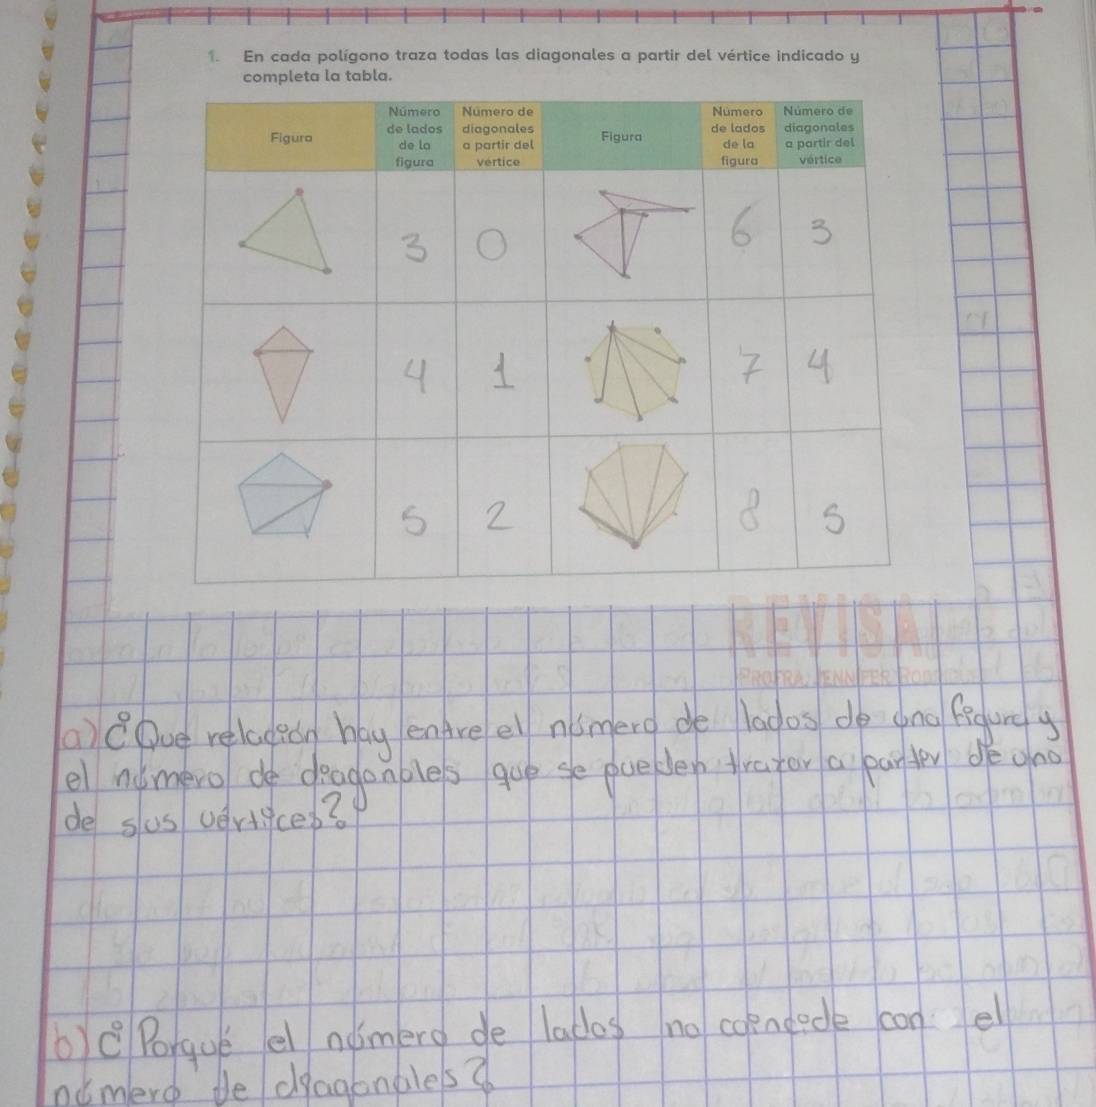 1. En cada polígono traza todas las diagonales a partir del vértice indicado y
completa la tabla.
Figura
Número de lados de la figura
Número de diagonales a partir del vértice
Figura
Número de lados de la figura
Número de diagonales a partir del vértice
3 0 6 3
4 1 7 4
5 2 8 5
REVISA
PROFRA. JENNIFER
a) ¿Que relación hay entre el número de lados de una figura y
el número de diagonales que se pueden trazar a parter de una
de sus vértices?
b) ¿Porqué el número de lados no coincide con el
número de diagonales?